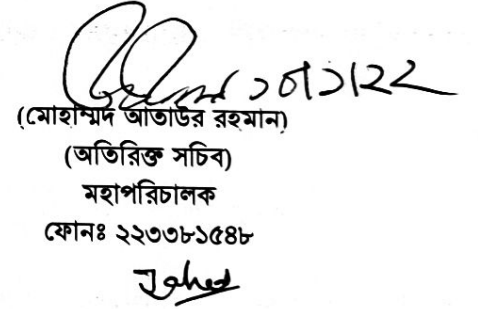 ২০১২২
(মোহাম্মদ আতাউর রহমান)
(অতিরিক্ত সচিব)
মহাপরিচালক
ফোনঃ ২২৩৩৮১৫৪৮
Jahed